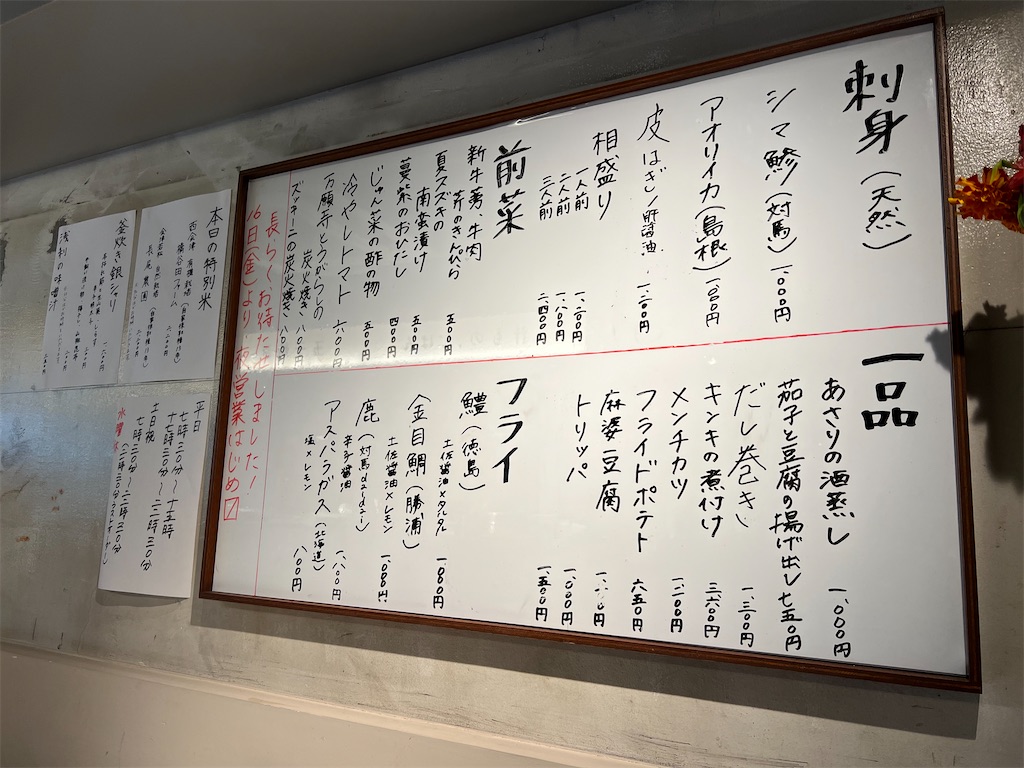 刺身(天然)
シマ鯵(対馬) 一、一〇〇円
アオリイカ(島根) 一、一〇〇円
皮はぎ/肝醤油 一、二〇〇円
相盛り
一人前 一、二〇〇円
二人前 一、八〇〇円
三人前 二、四〇〇円
前菜
新牛蒡、牛肉
芹のきんぴら 五〇〇円
夏スズキの
南蛮漬け 五〇〇円
蔓紫のおひたし 四〇〇円
じゅん菜の酢の物 五〇〇円
冷やしトマト 六〇〇円
万願寺とうがらしの
炭火焼き 八〇〇円
ズッキーニの炭火焼き 八〇〇円
一品
あさりの酒蒸し 一、〇〇〇円
茄子と豆腐の揚げ出し 七五〇円
だし巻き 一、三〇〇円
キンキの煮付け 三、六〇〇円
メンチカツ 一、二〇〇円
フライドポテト 六五〇円
麻婆豆腐
トリッパ 一、〇〇〇円
一、五〇〇円
フライ
鱧(徳島)
土佐醤油×タルタル 一、八〇〇円
金目鯛(勝浦)
土佐醤油×レモン 一、八〇〇円
鹿(対馬daidai)
辛子醤油 一、八〇〇円
アスパラガス(北海道)
塩×レモン 八〇〇円
長らくお待たせしました!
16日(金)より夜営業はじめ〼
本日の特別米
西会津 有機栽培
自然栽培
長尾農園
釜炊き銀シャリ
浅利の味噌汁
平日
七時三〇分〜十五時
十七時三〇分〜
土日祝
七時三〇分〜二二時三〇分